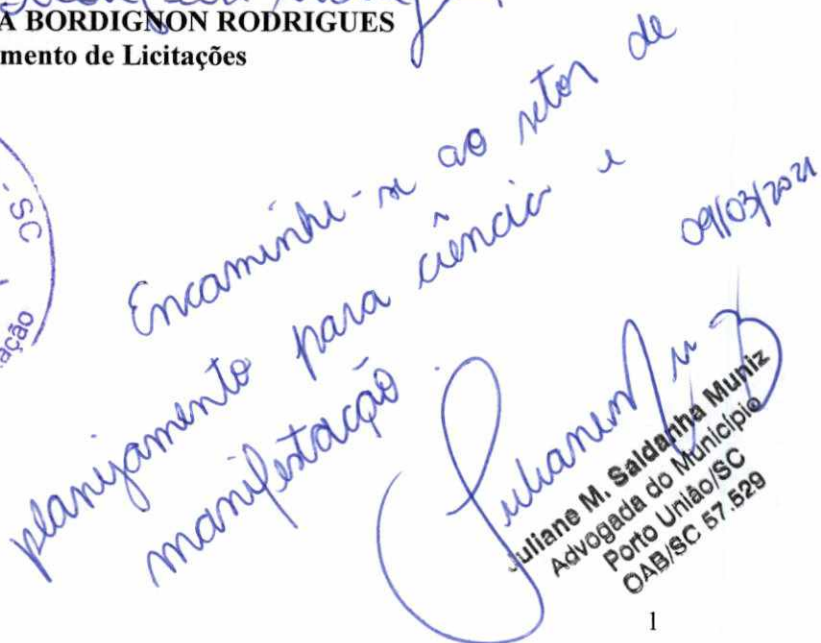 A BORDIGNON RODRIGUES
mento de Licitações
- SC
ação
Encaminhe-se ao setor de
planejamento para ciência e
manifestação.
09/03/2021
Juliane M. Saldanha Muniz
Advogada do Município
Porto União/SC
OAB/SC 57.529
1